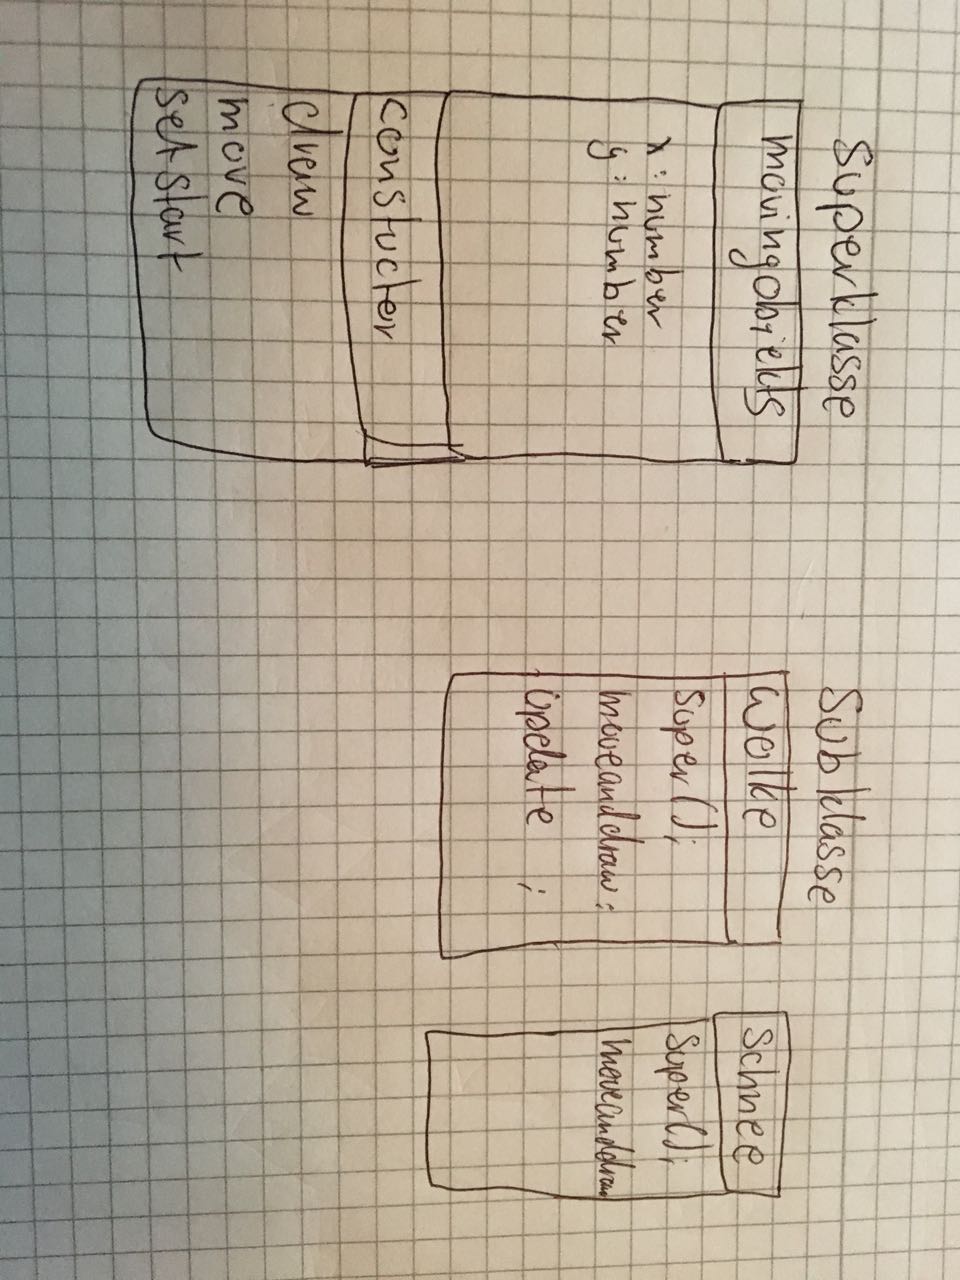 Superklasse
movingobjekts
x : number
y : number
constucter
draw
move
setStart
Subklasse
Wolke
Super();
moveanddraw;
update ;
Schnee
Super();
moveanddraw